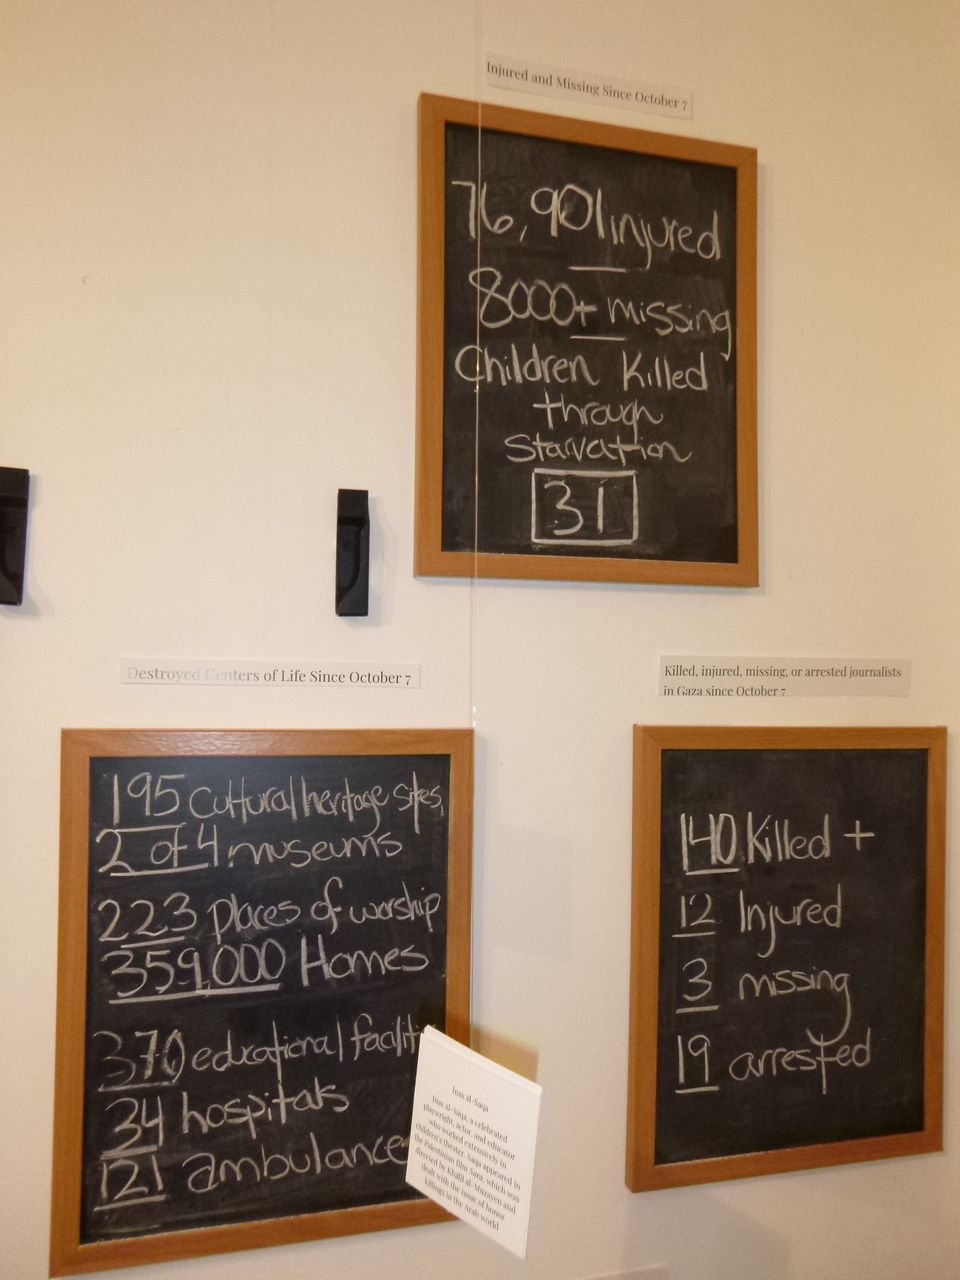 Injured and Missing Since October 7
76,901 injured
8000+ missing
Children Killed
through
Starvation
31
Destroyed Centers of Life Since October 7
195 Cultural heritage sites,
2 of 4 museums
223 places of worship
359,000 Homes
370 educational facilit
34 hospitals
121 ambulance
Killed, injured, missing, or arrested journalists
in Gaza since October 7
140 Killed +
12 Injured
3 missing
19 arrested
Inas al-Saqa
Inas al-Saqa, a celebrated
playwright, actor, and educator
who worked extensively in
children's theater. Saqa appeared in
the Palestinian film Sara, which was
directed by Khalil al-Muzayen and
dealt with the issue of honor
killings in the Arab world